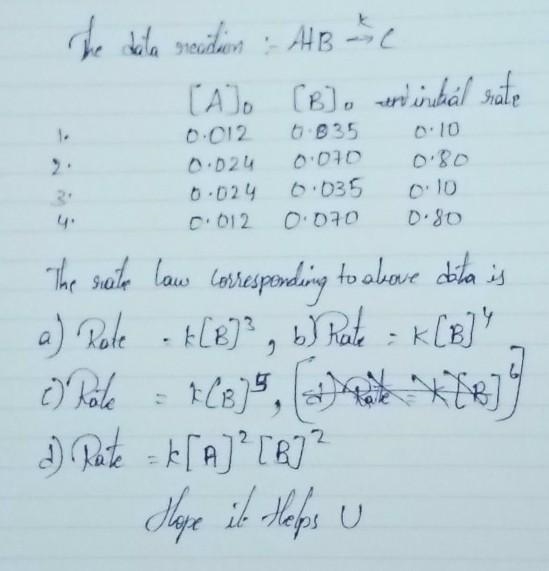 The data reaction :- A+B k→ C
[A]₀ [B]₀ initial rate
1. 0.012 0.035 0.10
2. 0.024 0.070 0.80
3. 0.024 0.035 0.10
4. 0.012 0.070 0.80
The rate law corresponding to above data is
a) Rate = k[B]³, b) Rate = K[B]⁴
c) Rate = k[B]⁵, [d) Rate = K[B]⁶]
d) Rate = k[A]²[B]²
Hope it Helps U